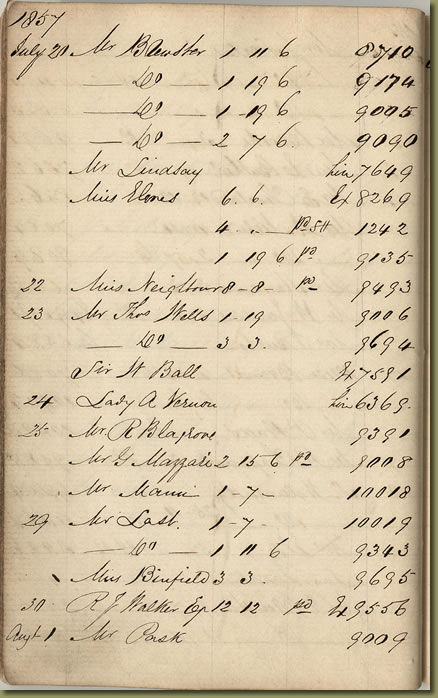 1857
July 20 Mr Brewster 1 11 6 8710
— Do — 1 19 6 9174
— Do — 1 - 19 6 9005
— Do — 2 7 6 9090
Mr Lindsay 7649
Miss Elmes 6. 6. Ex 8269
4 .. — pd SH 1242
1 19 6 pd 9135
22 Miss Neightour 8 - 8 - pd 9493
23 Mr Thos Wells 1 - 19 9006
— Do — 3 3. 9694
Sir W Ball Ex 7591
24 Lady A Vernon 6369.
25 Mr R Blagrove 9391
Mr G 2 15 6 pd 9008
Mr 1 - 7 - 10018
29 Mr Last. 1 - 7 - 10019
— Do — 1 11 6 9343
Miss Binfield 3 3. 9695
30 R J Walker 12 12 pd Ex 9556
Augt 1 Mr Pask 9009